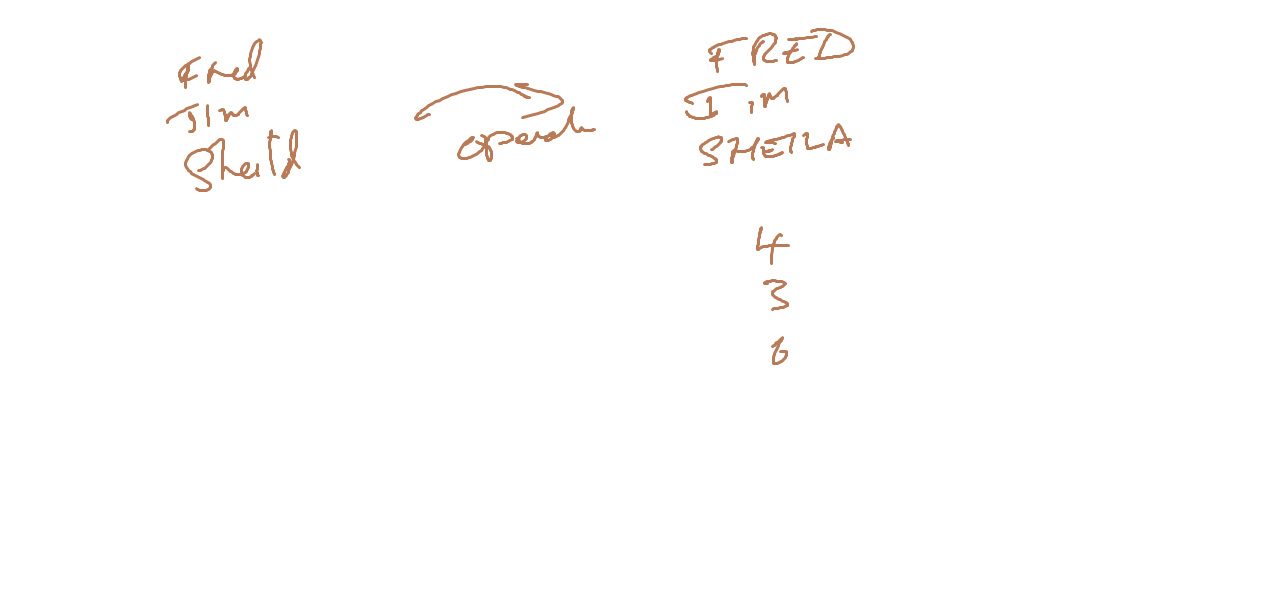 Fred
Jim
Sheila
operate
FRED
JIM
SHEILA
4
3
6